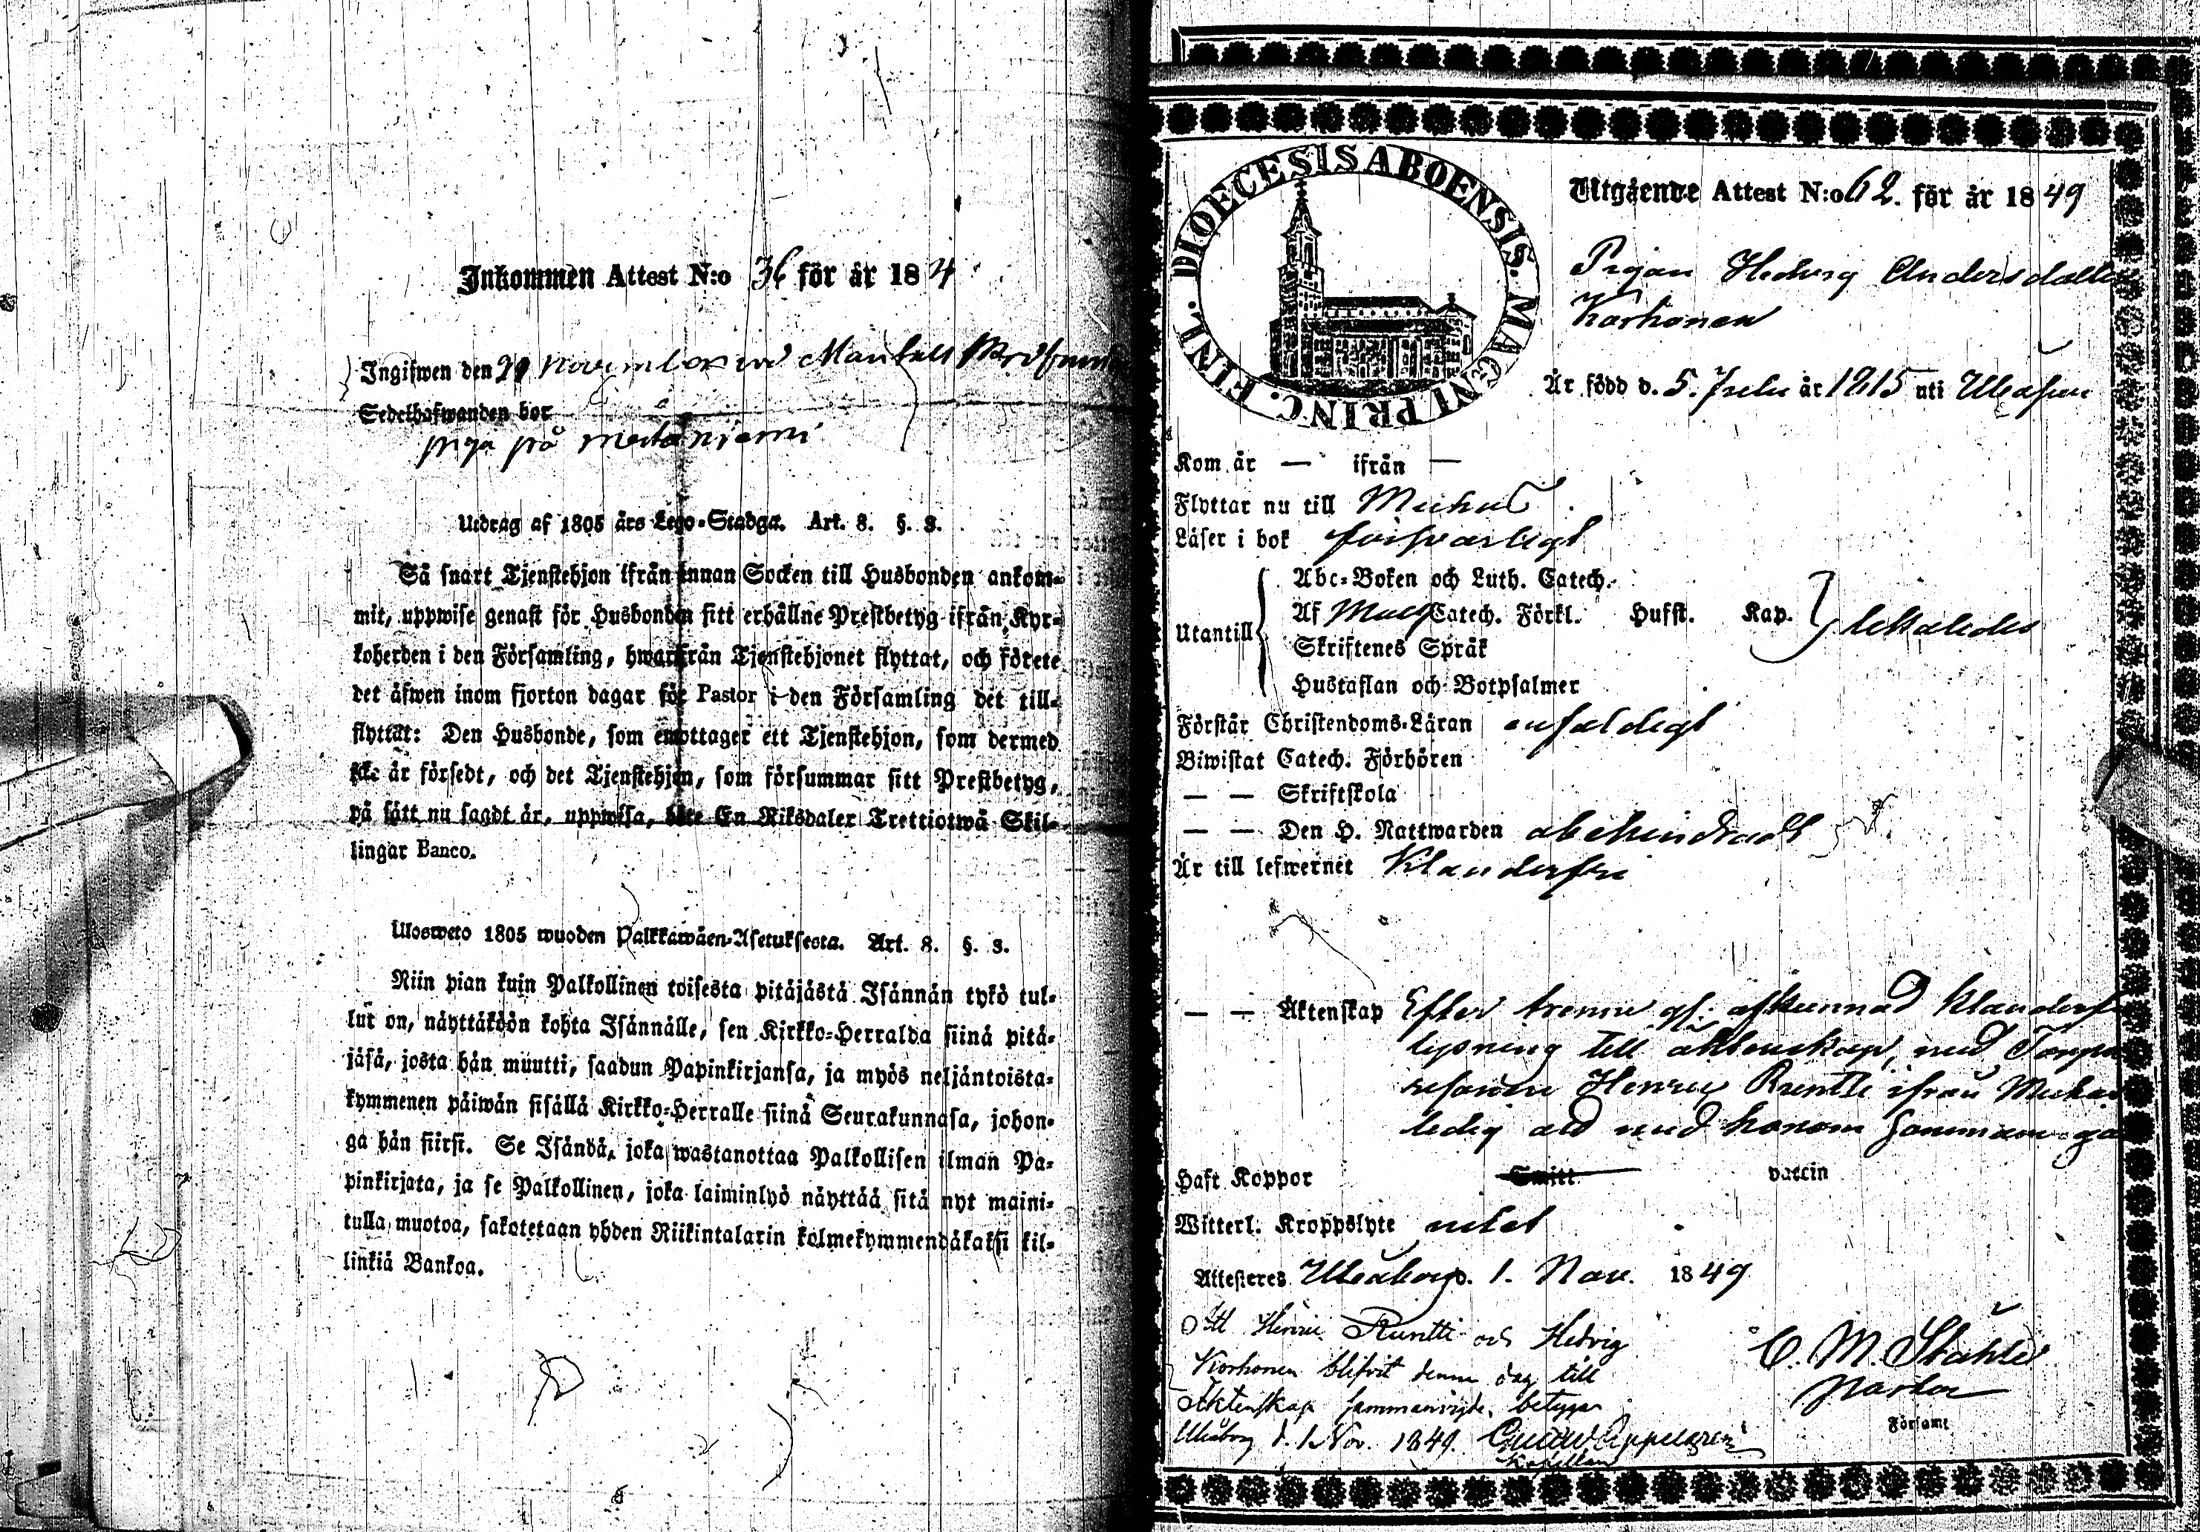 Inkommen Attest N:o 36 för år 184
Ingifwen den 29 November wid Mantals
Sedelhafwanden bor
piga på
Utdrag af 1805 års Lego-Stadga. Art. 8. §. 3.
Så snart Tjenstehjon ifrån annan Socken till Husbonden ankom-
mit, uppwise genast för Husbonden sitt erhållne Prestbetyg ifrån Kyr-
koherden i den Församling, hwarifrån Tjenstehjonet flyttat, och förete
det äfwen inom fjorton dagar för Pastor i den Församling det till-
flyttat: Den Husbonde, som emottager ett Tjenstehjon, som dermed
icke är försedt, och det Tjenstehjon, som försummar sitt Prestbetyg,
på sätt nu sagdt är, uppwisa, böte En Riksdaler Trettiotwå Skil-
lingar Banco.
Ulosweto 1805 wuoden Palkkawäen-Asetuksesta. Art. 8. §. 3.
Niin pian kuin Palkollinen toisesta pitäjästä Isännän tykö tul-
lut on, näyttäköön kohta Isännälle, sen Kirkko-Herralda siinä pitä-
jäsä, josta hän muutti, saadun Papinkirjansa, ja myös neljäntoista-
kymmenen päiwän sisällä Kirkko-Herralle siinä Seurakunnasa, johon-
ga hän siirsi. Se Isändä, joka wastanottaa Palkollisen ilman Pa-
pinkirjata, ja se Palkollinen, joka laiminlyö näyttää sitä nyt maini-
tulla muotoa, sakotetaan yhden Riikintalarin kolmekymmendäkaksi kil-
linkiä Bankoa.
DIOECESIS ABOENSIS. MAGNI PRINC. FINL.
Utgående Attest N:o 62. för år 1849
Pigan Hedvig Andersdotter
Korhonen
Är född d. 5. Julii år 1815 uti Uleåsun
Kom år — ifrån —
Flyttar nu till Muhos
Läser i bok försvarligt
Utantill
Abc-Boken och Luth. Catech.
Af Catech. Förkl. Husst. Kap.
Skriftenes Språk
Hustaflan och Botpsalmer
Förstår Christendoms-Läran enfaldigt
Biwistat Catech. Förhören
— — Skriftskola
— — Den H. Nattwarden obehindradt
Är till lefwernet Klanderfri
— — Äktenskap Efter trenne gr: afkunnad klanderf
lysning till äktenskap, med Torpa
resonen Henric Runtti ifrån Muhos
ledig att med honom sammanga
Haft Koppor Smitt vaccin
Witterl. Kroppslyte intet
Attesteres Uleåborg d. 1. Nov. 1849
C. M. Ståhle
Pastor
Församl
Att Henric Runtti och Hedvig
Korhonen blifvit denna dag till
Äktenskap sammanvigde, betygar
Uleåborg d. 1 Nov. 1849. Gustav Appelgren
Kapellan